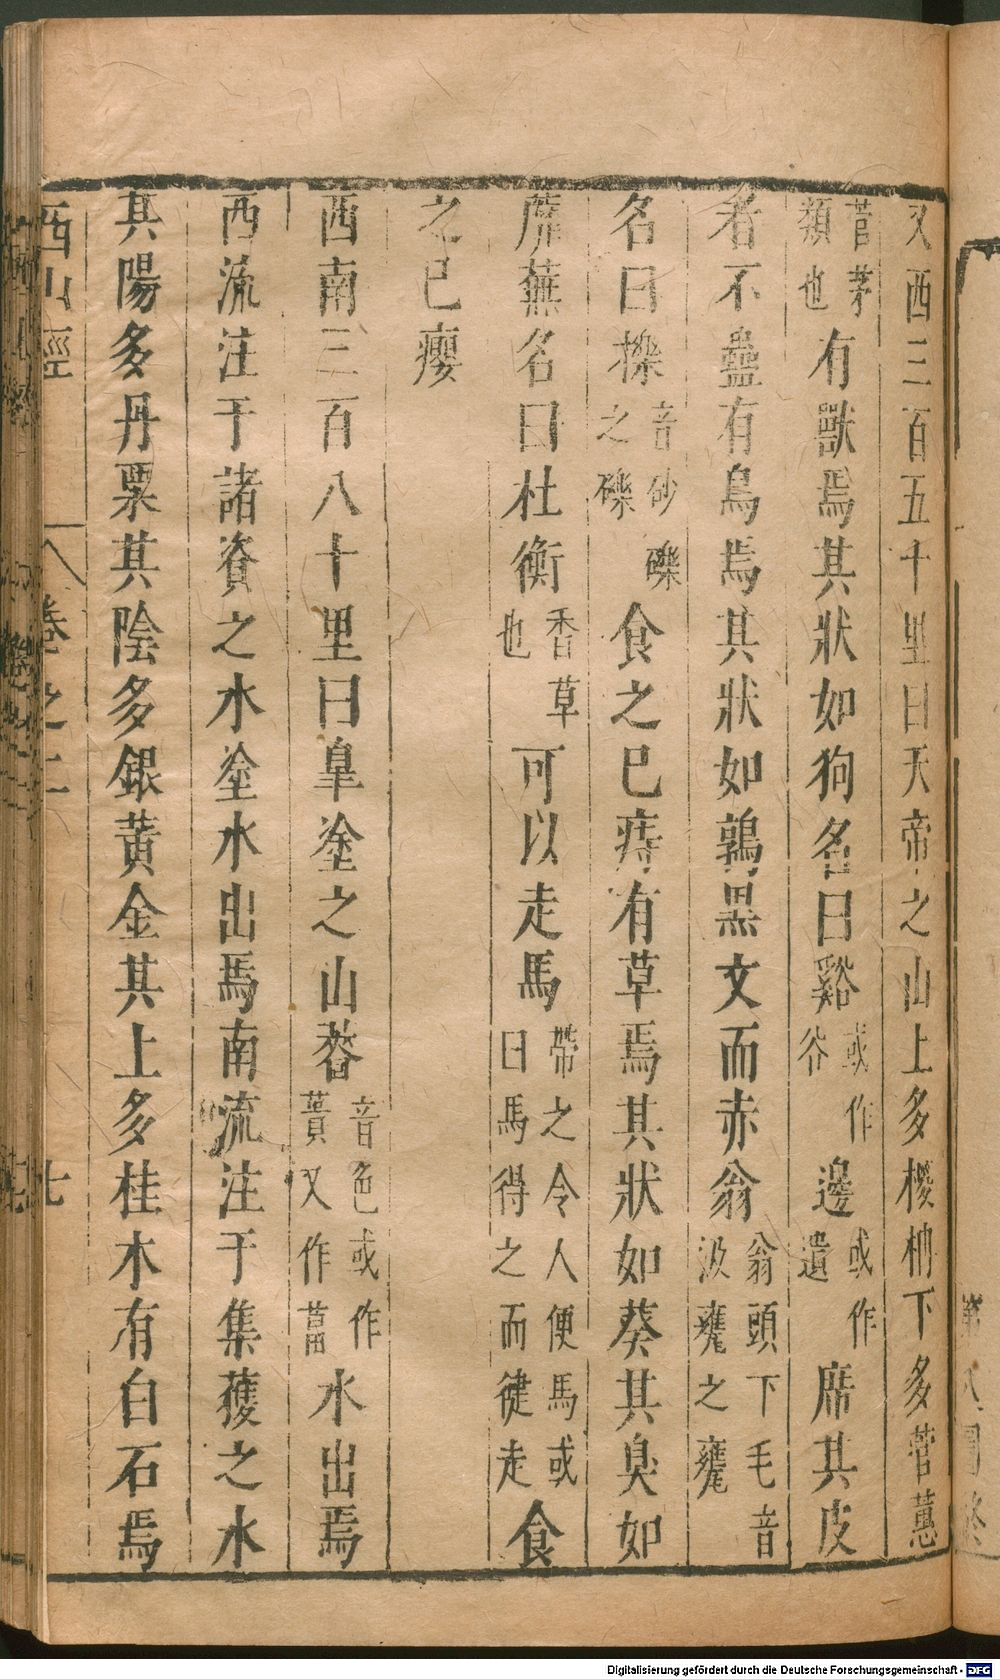 又西三百五十里曰天帝之山上多椶枏下多菅蕙
菅茅類也有獸焉其狀如狗名曰谿或作谷邊或作遺席其皮
者不蠱有鳥焉其狀如鶉黑文而赤翁翁頭下毛音汲甕之甕
名曰櫟音砂礫之礫食之已痔有草焉其狀如葵其臭如
蘼蕪名曰杜衡香草也可以走馬帶之令人便馬或曰馬得之而健走食
之已癭
西南三百八十里曰皋塗之山薔音色或作蕢又作葍水出焉
西流注于諸資之水塗水出焉南流注于集蒦之水
其陽多丹粟其陰多銀黃金其上多桂木有白石焉
西山經 卷之二 七
Digitalisierung gefördert durch die Deutsche Forschungsgemeinschaft - DFG